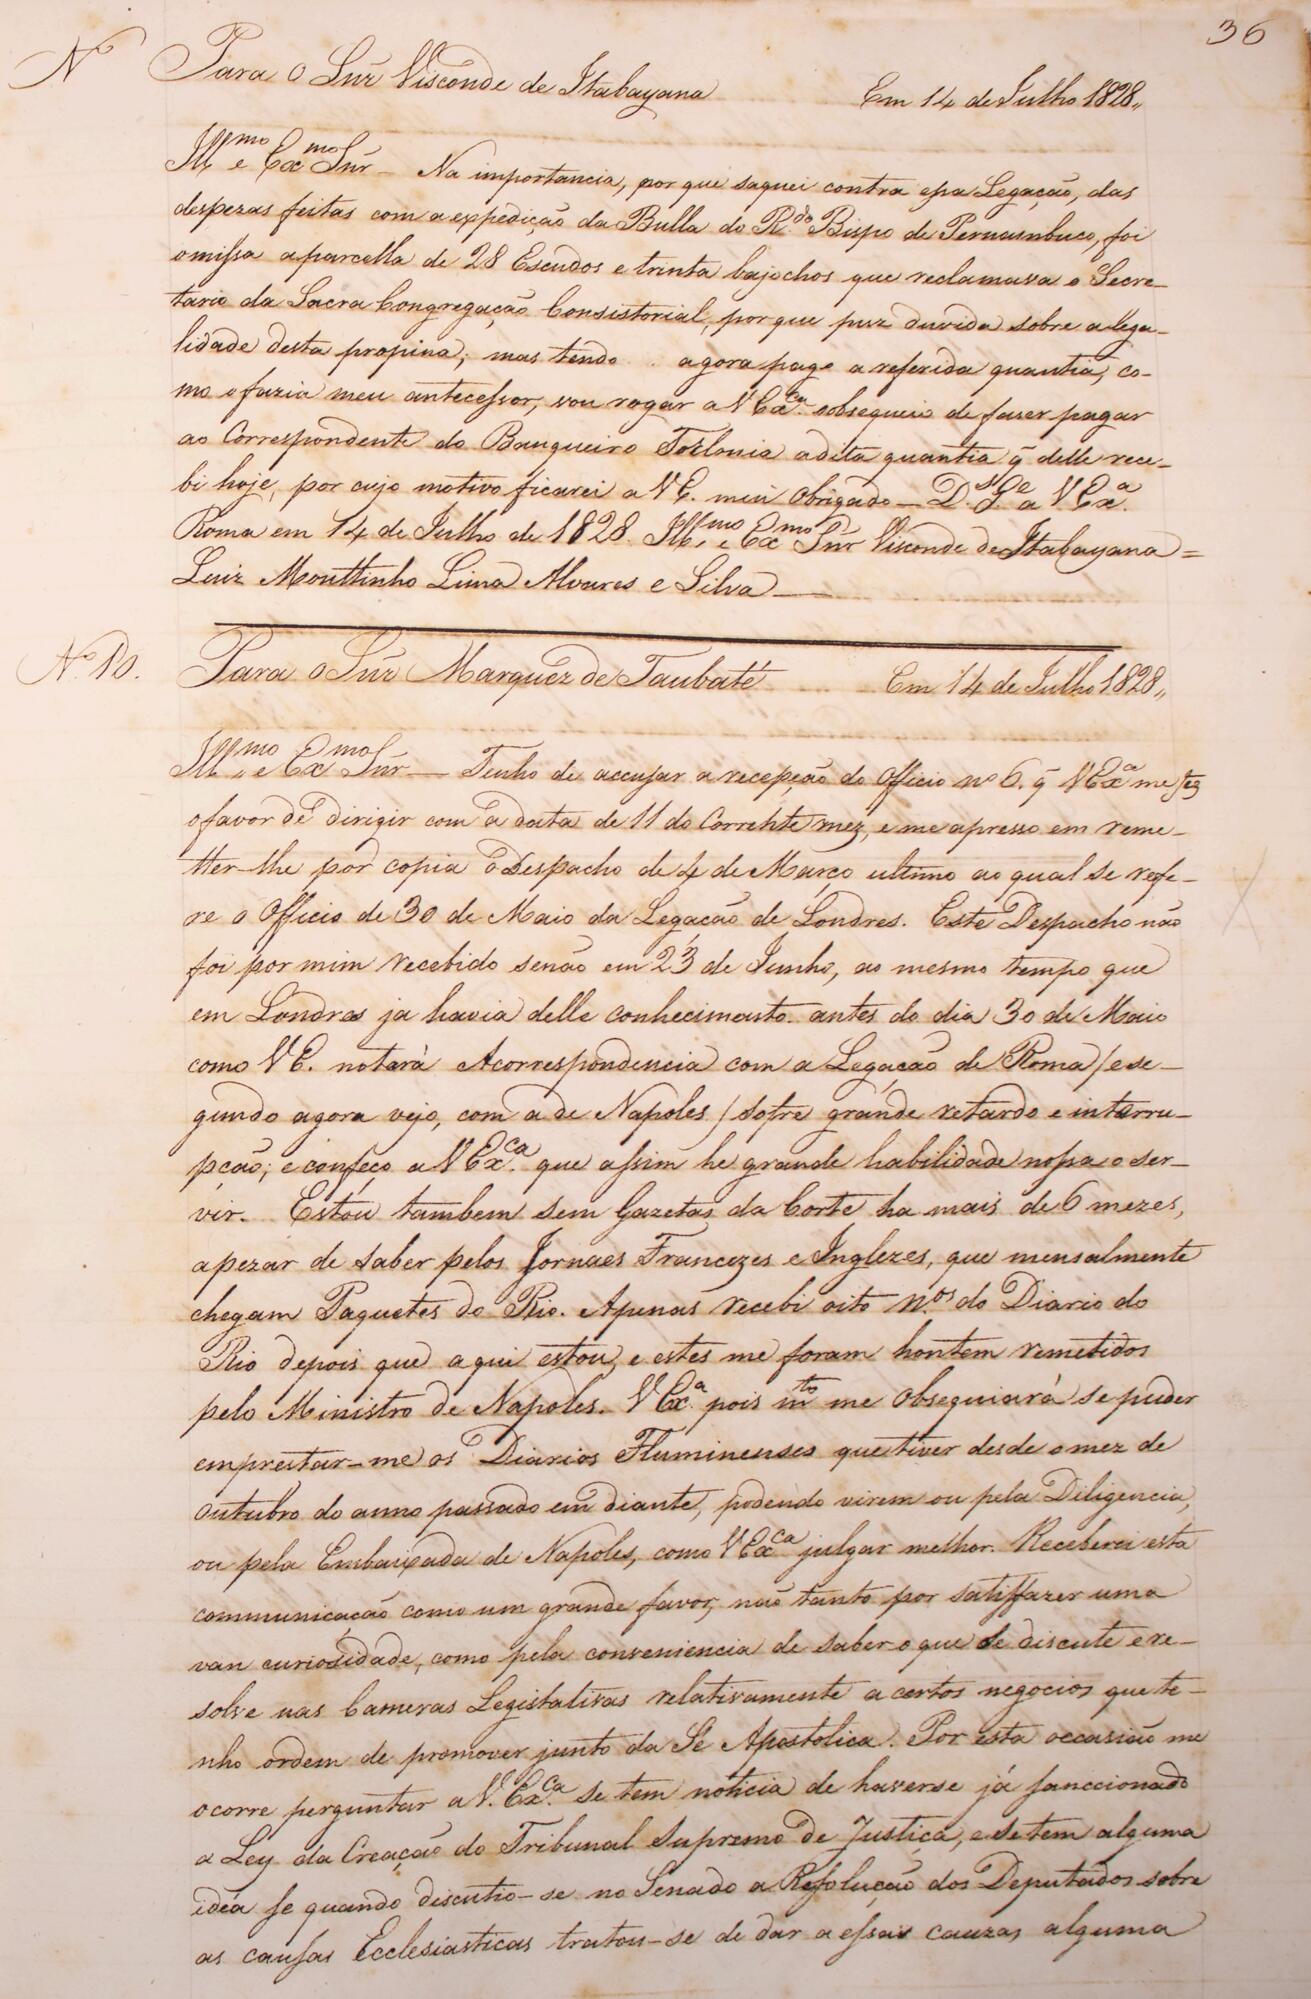 36
N.º Para o Snr Visconde de Itabayana Em 14 de Julho 1828,,
Ill.mo e Ex.mo Snr — Na importancia, por que saquei contra essa Legação, das
despezas feitas com a expedição da Bulla do R.do Bispo de Pernambuco, foi
omissa a parcella de 28 Escudos e trinta bajochos que reclamava o Secre-
tario da Sacra Congregação Consistorial, porque puz duvida sobre a lega-
lidade desta propina; mas tendo agora pago a referida quantia, co-
mo o fazia meu antecessor, vou rogar a V Ex.ca o obsequio de fazer pagar
ao Correspondente do Banqueiro Torlonia a dita quantia q̃ delle rece-
bi hoje, por cujo motivo ficarei a V E. mui obrigado — D.s G.e a V Ex.a
Roma em 14 de Julho de 1828. Ill.mo e Ex.mo Snr Visconde de Itabayana =
Luiz Mouttinho Lima Alvares e Silva —
N.º 10. Para o Snr Marquêz de Taubaté Em 14 de Julho 1828,,
Ill.mo e Ex.mo Snr — Tenho de accusar a recepção do Officio nº 6. q̃ V Ex.ca me fez
o favor de dirigir com a data de 11 do Corrente mez, e me apresso em reme-
tter-lhe por copia o Despacho de 4 de Março ultimo ao qual se refe-
re o Officio de 30 de Maio da Legacão de Londres. Este Despacho não
foi por mim recebido senão em 23 de Junho, ao mesmo tempo que
em Londres ja havia delle conhecimento antes do dia 30 de Maio
como V E. notará A correspondencia com a Legacão de Roma / e se-
gundo agora vejo, com a de Napoles / sofre grande retardo e interru-
pção; e confeço a V Ex.ca que assim he grande habilidade nossa o ser-
vir. Estou tambem sem Gazetas da Corte ha mais de 6 mezes,
apezar de saber pelos Jornaes Francezes e Inglezes, que mensalmente
chegam Paquetes do Rio. Apenas recebi oito N.os do Diario do
Rio depois que aqui estou, e estes me foram hontem remetidos
pelo Ministro de Napoles. V Ex.a pois m.to me obsequiará se puder
emprestar-me os Diarios Fluminenses que tiver desde o mez de
Outubro do anno passado em diante, podendo virem ou pela Diligencia,
ou pela Embaixada de Napoles, como V Ex.ca julgar melhor. Receberei esta
communicação como um grande favor, não tanto por satisfazer uma
van curiosidade, como pela conveniencia de saber o que se discute e re-
solve nas Cameras Legislativas relativamente a certos negocios que te-
nho ordem de promover junto da Sé Apostolica. Por esta occasião me
ocorre perguntar a V. Ex.ca se tem noticia de haverse já sanccionado
a Ley da Creação do Tribunal Supremo de Justiça, e se tem alguma
idéa se quando discutio-se no Senado a Resolução dos Deputados sobre
as causas Ecclesiasticas tratou-se de dar a essas cauzas alguma